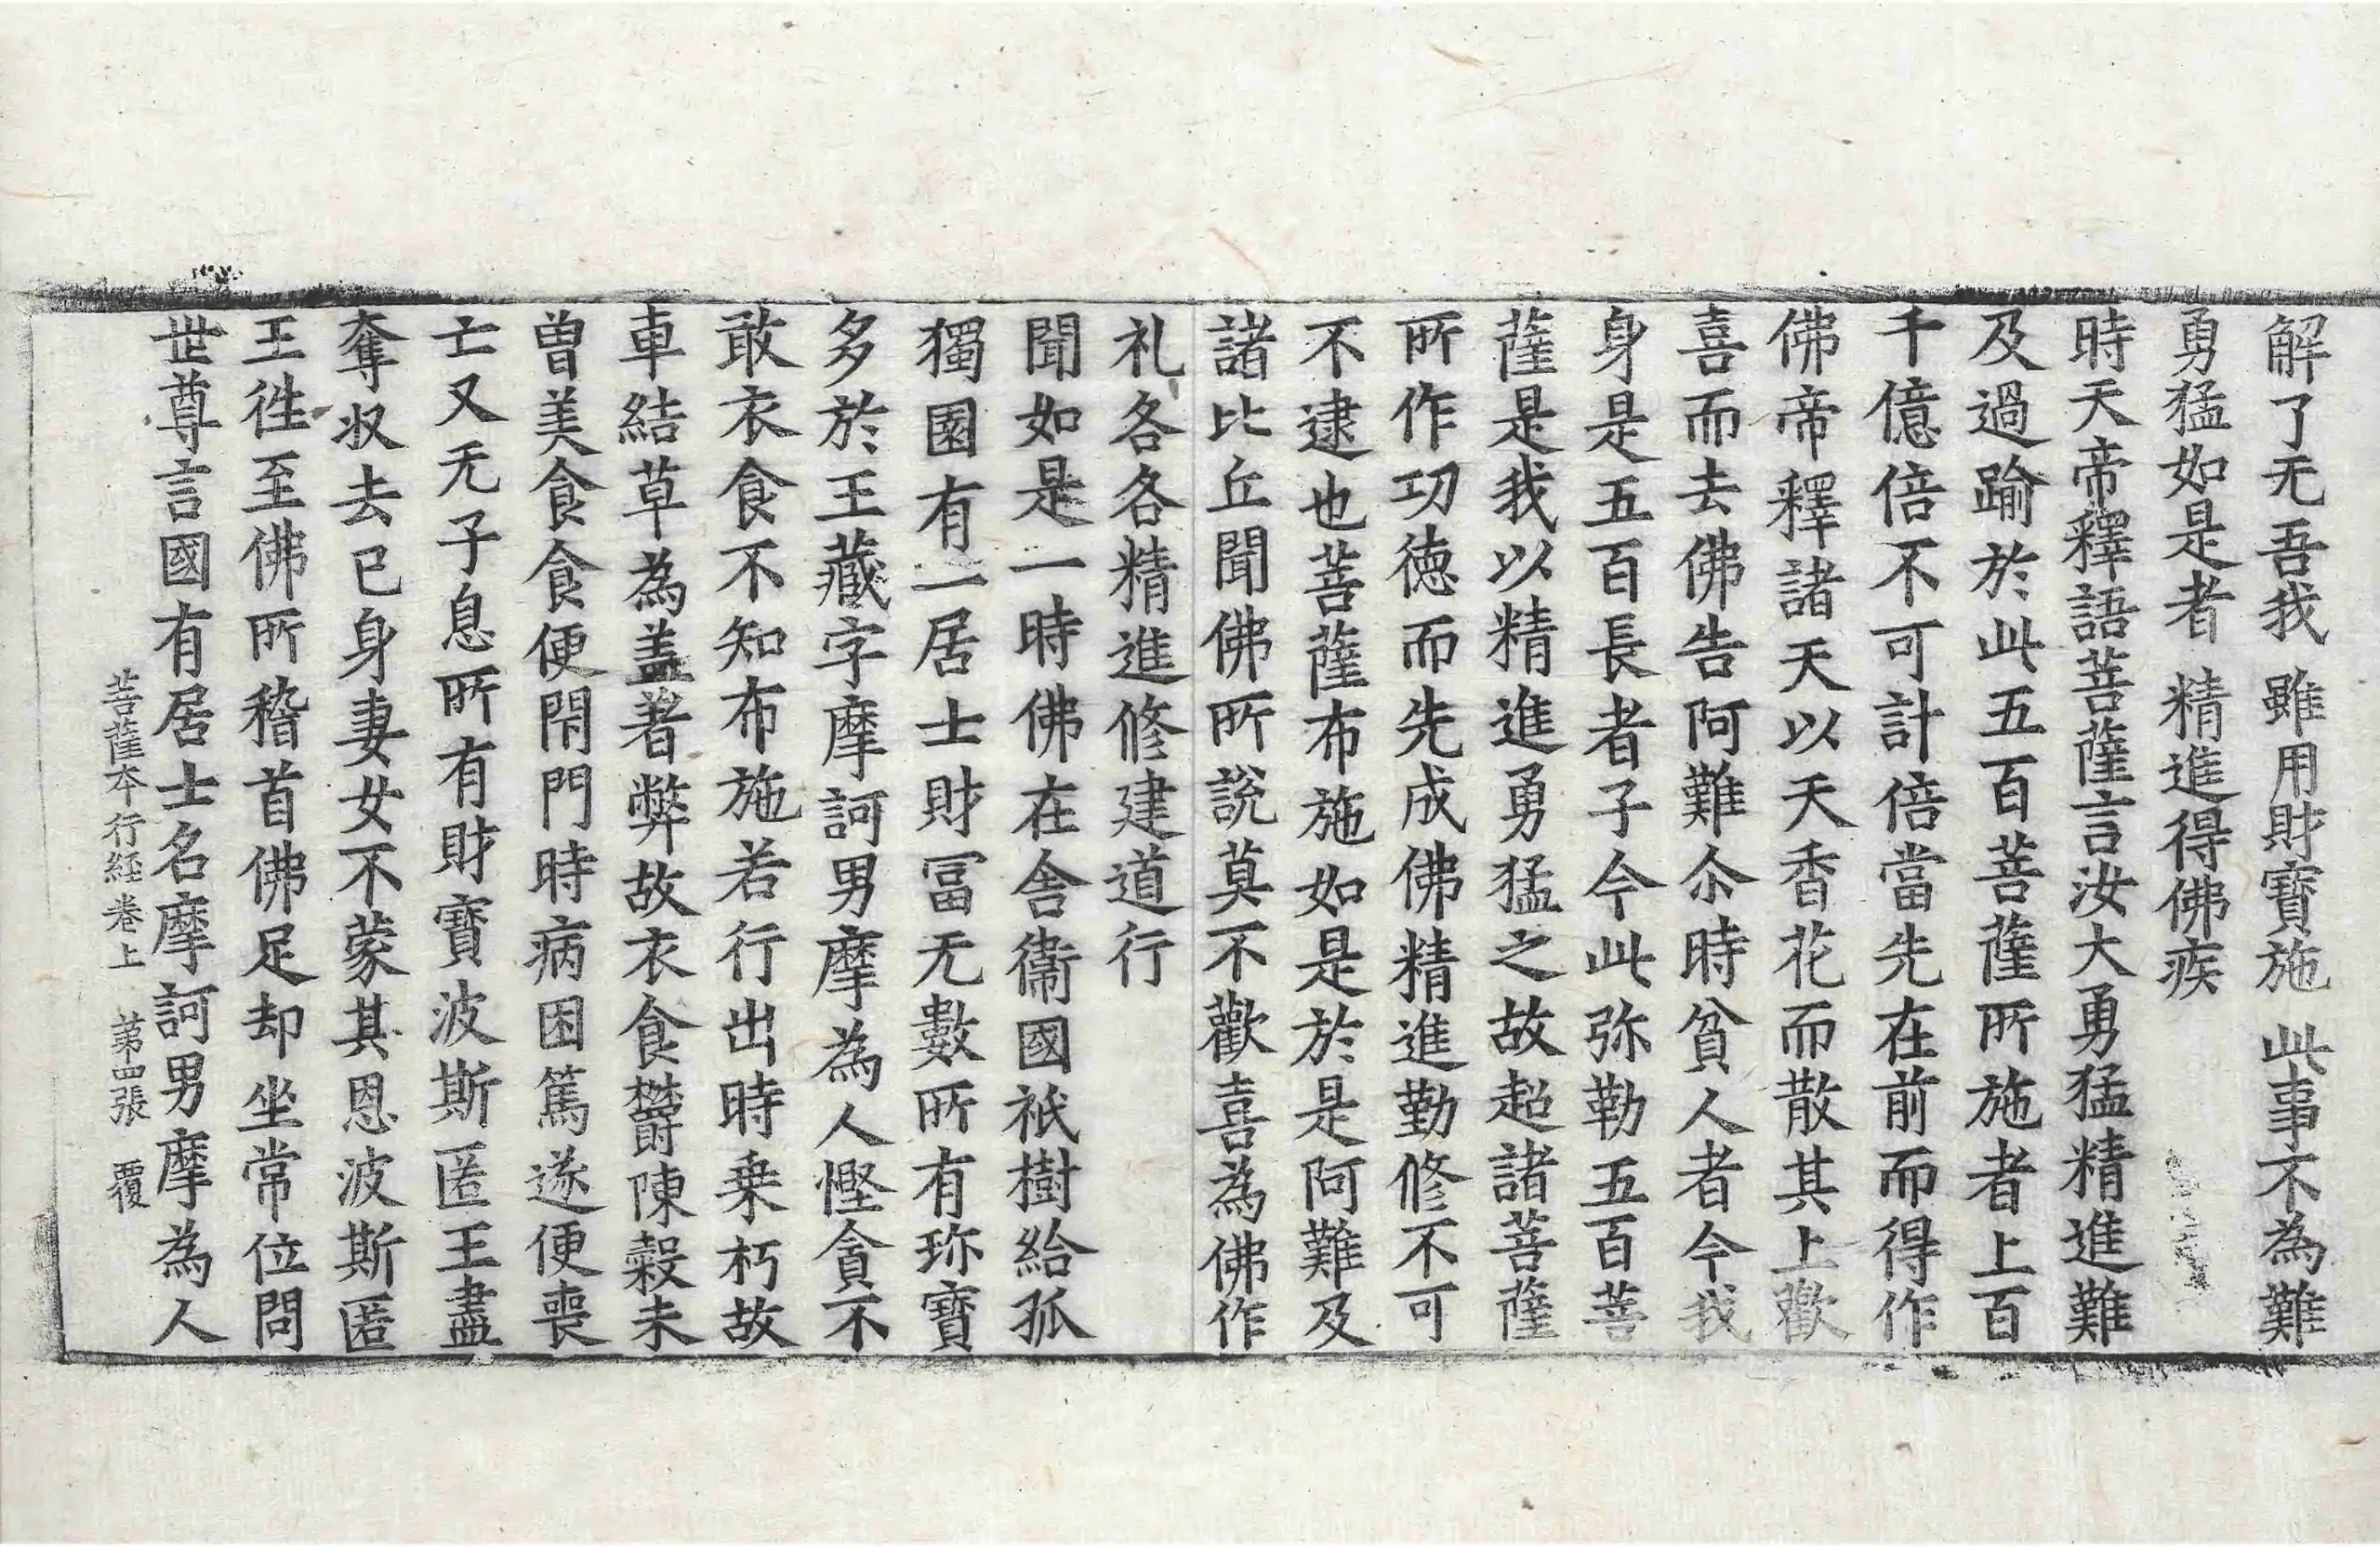 解了无吾我 雖用財寶施 此事不為難
勇猛如是者 精進得佛疾
時天帝釋語菩薩言汝大勇猛精進難
及過踰於此五百菩薩所施者上百
千億倍不可計倍當先在前而得作
佛帝釋諸天以天香花而散其上歡
喜而去佛告阿難尒時貧人者今我
身是五百長者子今此弥勒五百菩
薩是我以精進勇猛之故超諸菩薩
所作功德而先成佛精進勤修不可
不逮也菩薩布施如是於是阿難及
諸比丘聞佛所說莫不歡喜為佛作
礼各各精進修建道行
聞如是一時佛在舍衞國祇樹給孤
獨園有一居士財冨无數所有珎寶
多於王藏字摩訶男摩為人慳貪不
敢衣食不知布施若行出時乗朽故
車結草為盖著弊故衣食欝陳糓未
曽美食食便閇門時病困篤遂便喪
亡又无子息所有財寶波斯匿王盡
奪収去已身妻女不蒙其恩波斯匿
王徃至佛所稽首佛足却坐常位問
世尊言國有居士名摩訶男摩為人
菩薩本行経卷上 第四張 覆